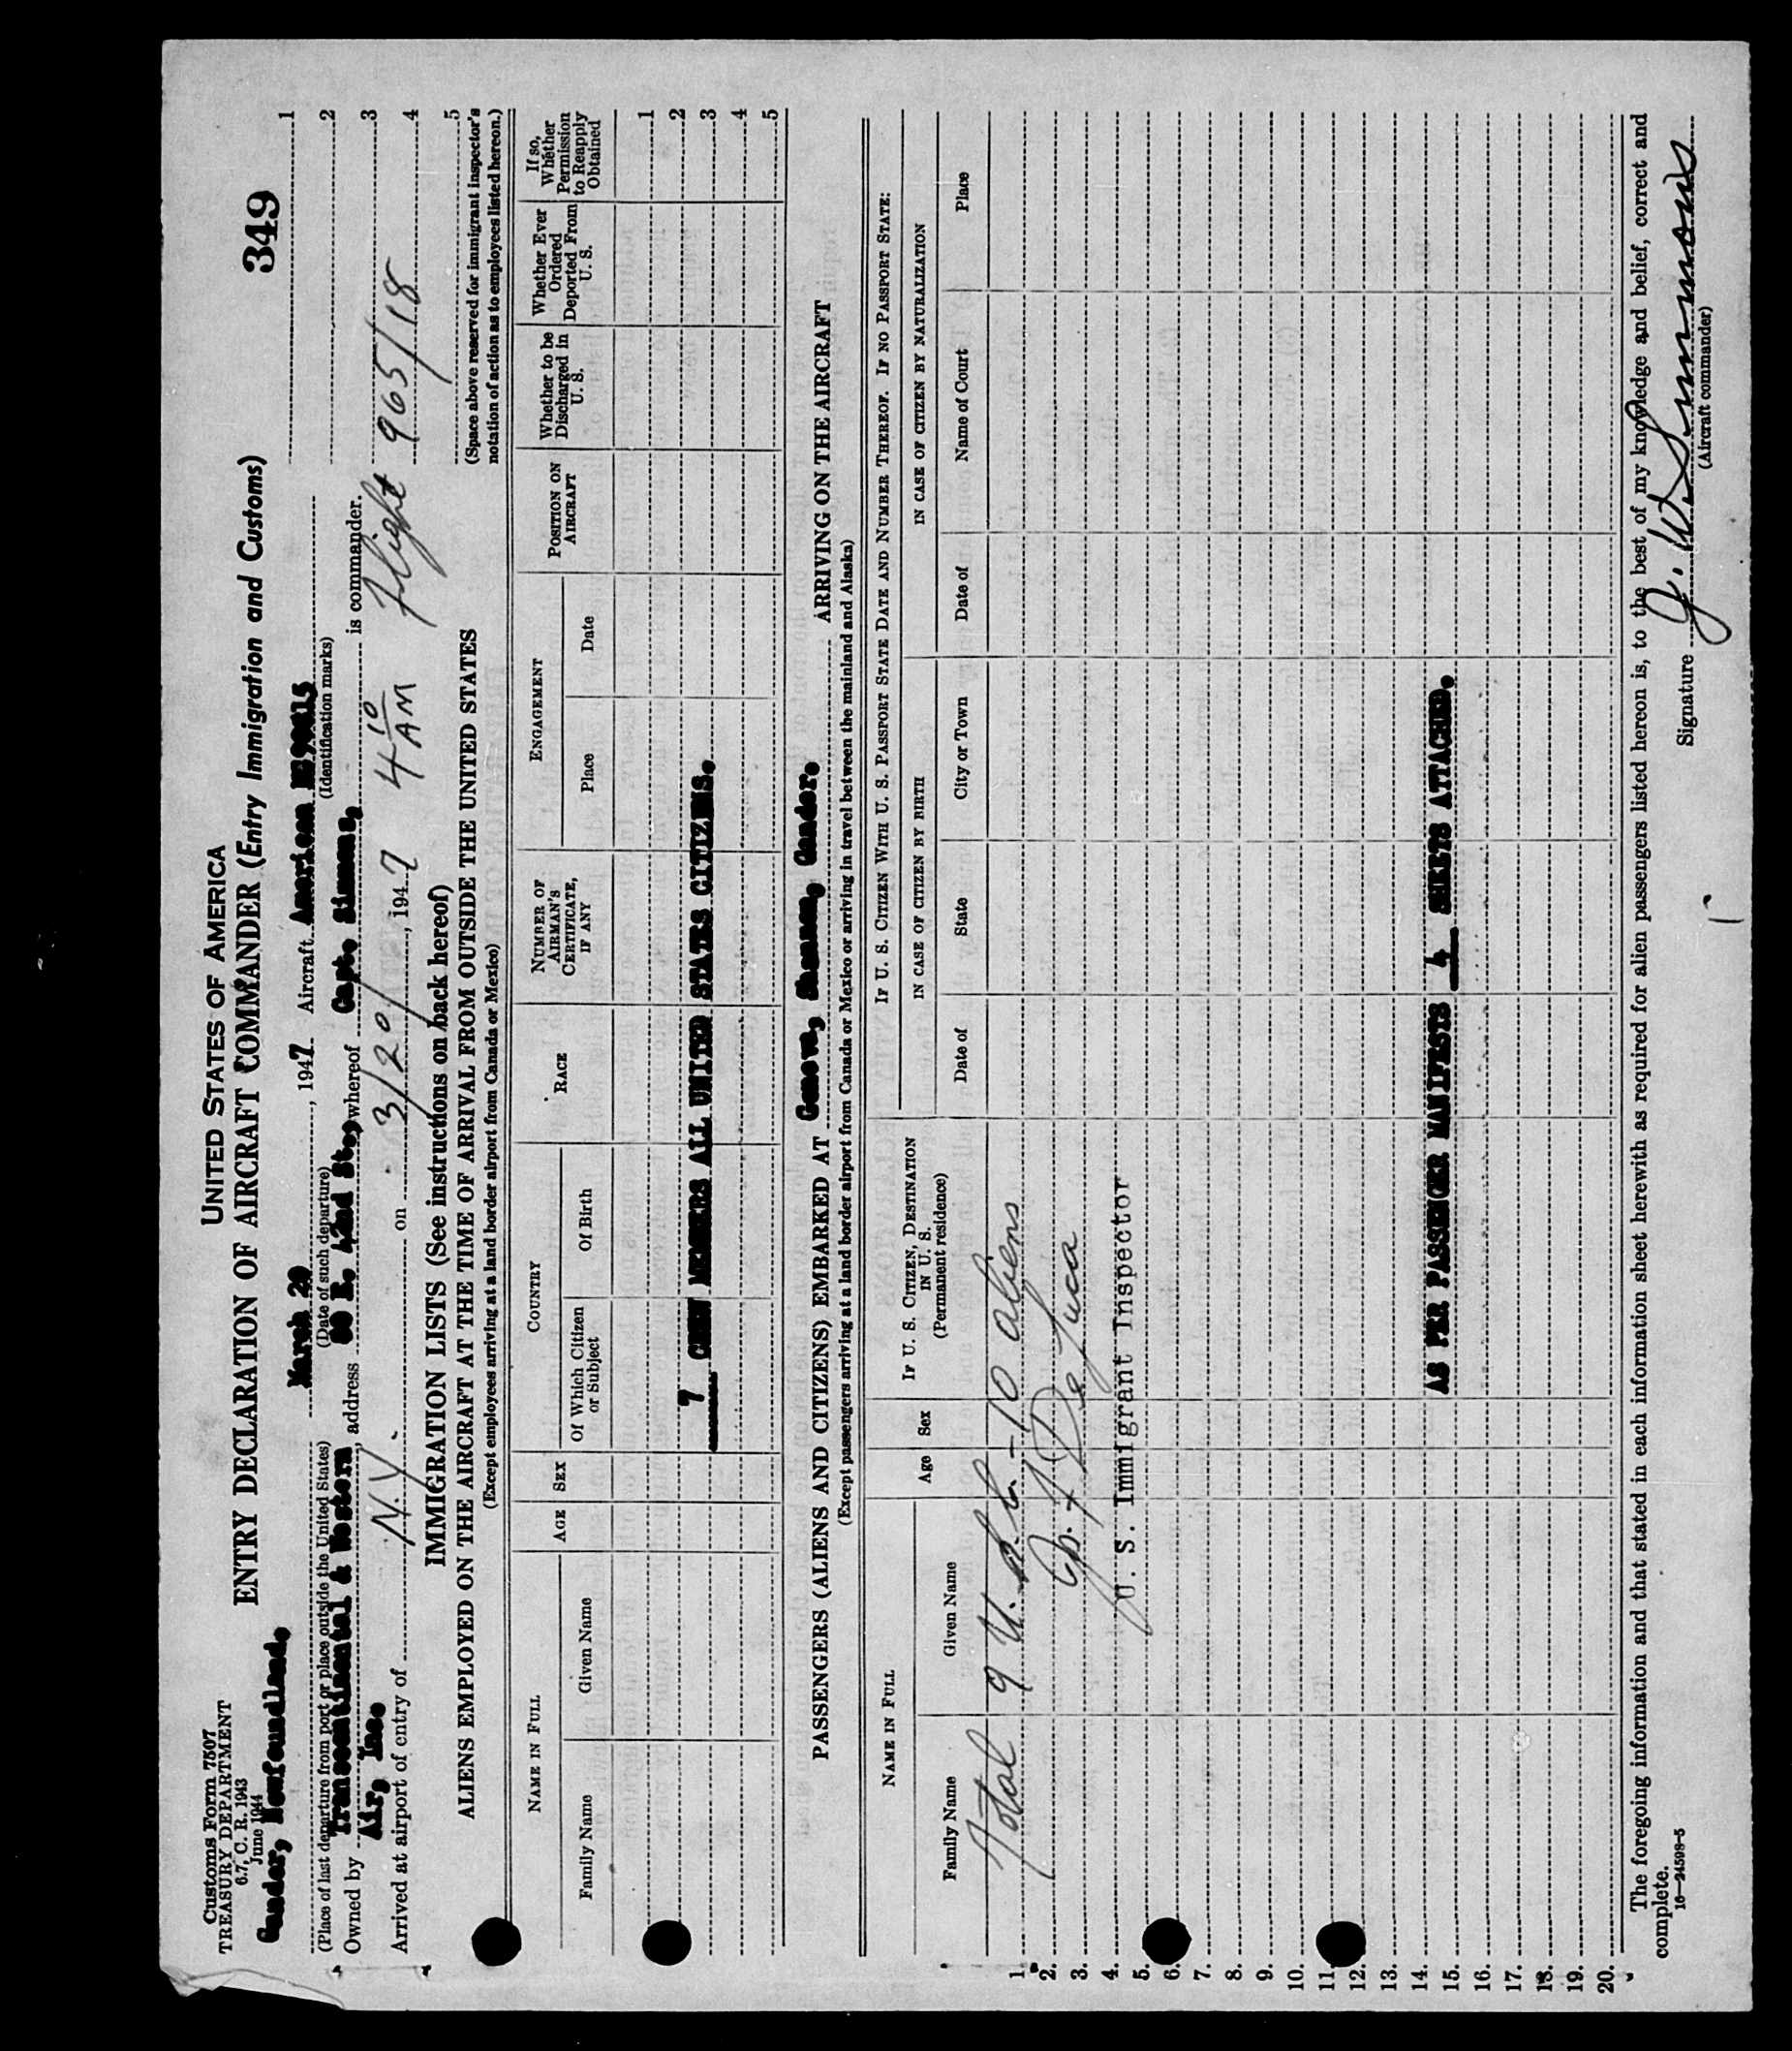 Customs Form 7507
TREASURY DEPARTMENT
6.7, C. R. 1943
June 1944
UNITED STATES OF AMERICA
ENTRY DECLARATION OF AIRCRAFT COMMANDER (Entry Immigration and Customs)
349
Gander, Newfoundland. March 20, 1947 Aircraft American
(Place of last departure from port or place outside the United States) (Date of such departure) (Identification marks)
Owned by Transcontinental & Western Air, Inc. address 60 E. 42nd St., whereof Capt. Simmons, is commander.
Arrived at airport of entry of N.Y. on 3/20, 1947 4 10 AM Flight 965/18
1
2
3
4
5
(Space above reserved for immigrant inspector's
notation of action as to employees listed hereon.)
IMMIGRATION LISTS (See instructions on back hereof)
ALIENS EMPLOYED ON THE AIRCRAFT AT THE TIME OF ARRIVAL FROM OUTSIDE THE UNITED STATES
(Except employees arriving at a land border airport from Canada or Mexico)
NAME IN FULL
Family Name
Given Name
AGE
SEX
COUNTRY
Of Which Citizen or Subject
Of Birth
RACE
NUMBER OF AIRMAN'S CERTIFICATE, IF ANY
ENGAGEMENT
Place
Date
POSITION ON AIRCRAFT
Whether to be Discharged in U. S.
Whether Ever Ordered Deported From U. S.
If so, Whether Permission to Reapply Obtained
1
2
7 CREW MEMBERS ALL UNITED STATES CITIZENS.
3
4
5
PASSENGERS (ALIENS AND CITIZENS) EMBARKED AT Geneva, Shannon, Gander. ARRIVING ON THE AIRCRAFT
(Except passengers arriving at a land border airport from Canada or Mexico or arriving in travel between the mainland and Alaska)
NAME IN FULL
Family Name
Given Name
Age
Sex
IF U. S. CITIZEN, DESTINATION IN U. S.
(Permanent residence)
IF U. S. CITIZEN WITH U. S. PASSPORT STATE DATE AND NUMBER THEREOF. IF NO PASSPORT STATE:
IN CASE OF CITIZEN BY BIRTH
Date of
State
City or Town
IN CASE OF CITIZEN BY NATURALIZATION
Date of
Name of Court
Place
1. Total 9 U. S. C. - 10 aliens
2.
3. De Luca
4.
5. U. S. Immigrant Inspector
6.
7.
8.
9.
10.
11.
12.
13.
14.
15. AS PER PASSENGER MANIFESTS 4 SHEETS ATTACHED.
16.
17.
18.
19.
20.
The foregoing information and that stated in each information sheet herewith as required for alien passengers listed hereon is, to the best of my knowledge and belief, correct and
complete.
16—24598-5
Signature J. W. Simmons
(Aircraft commander)